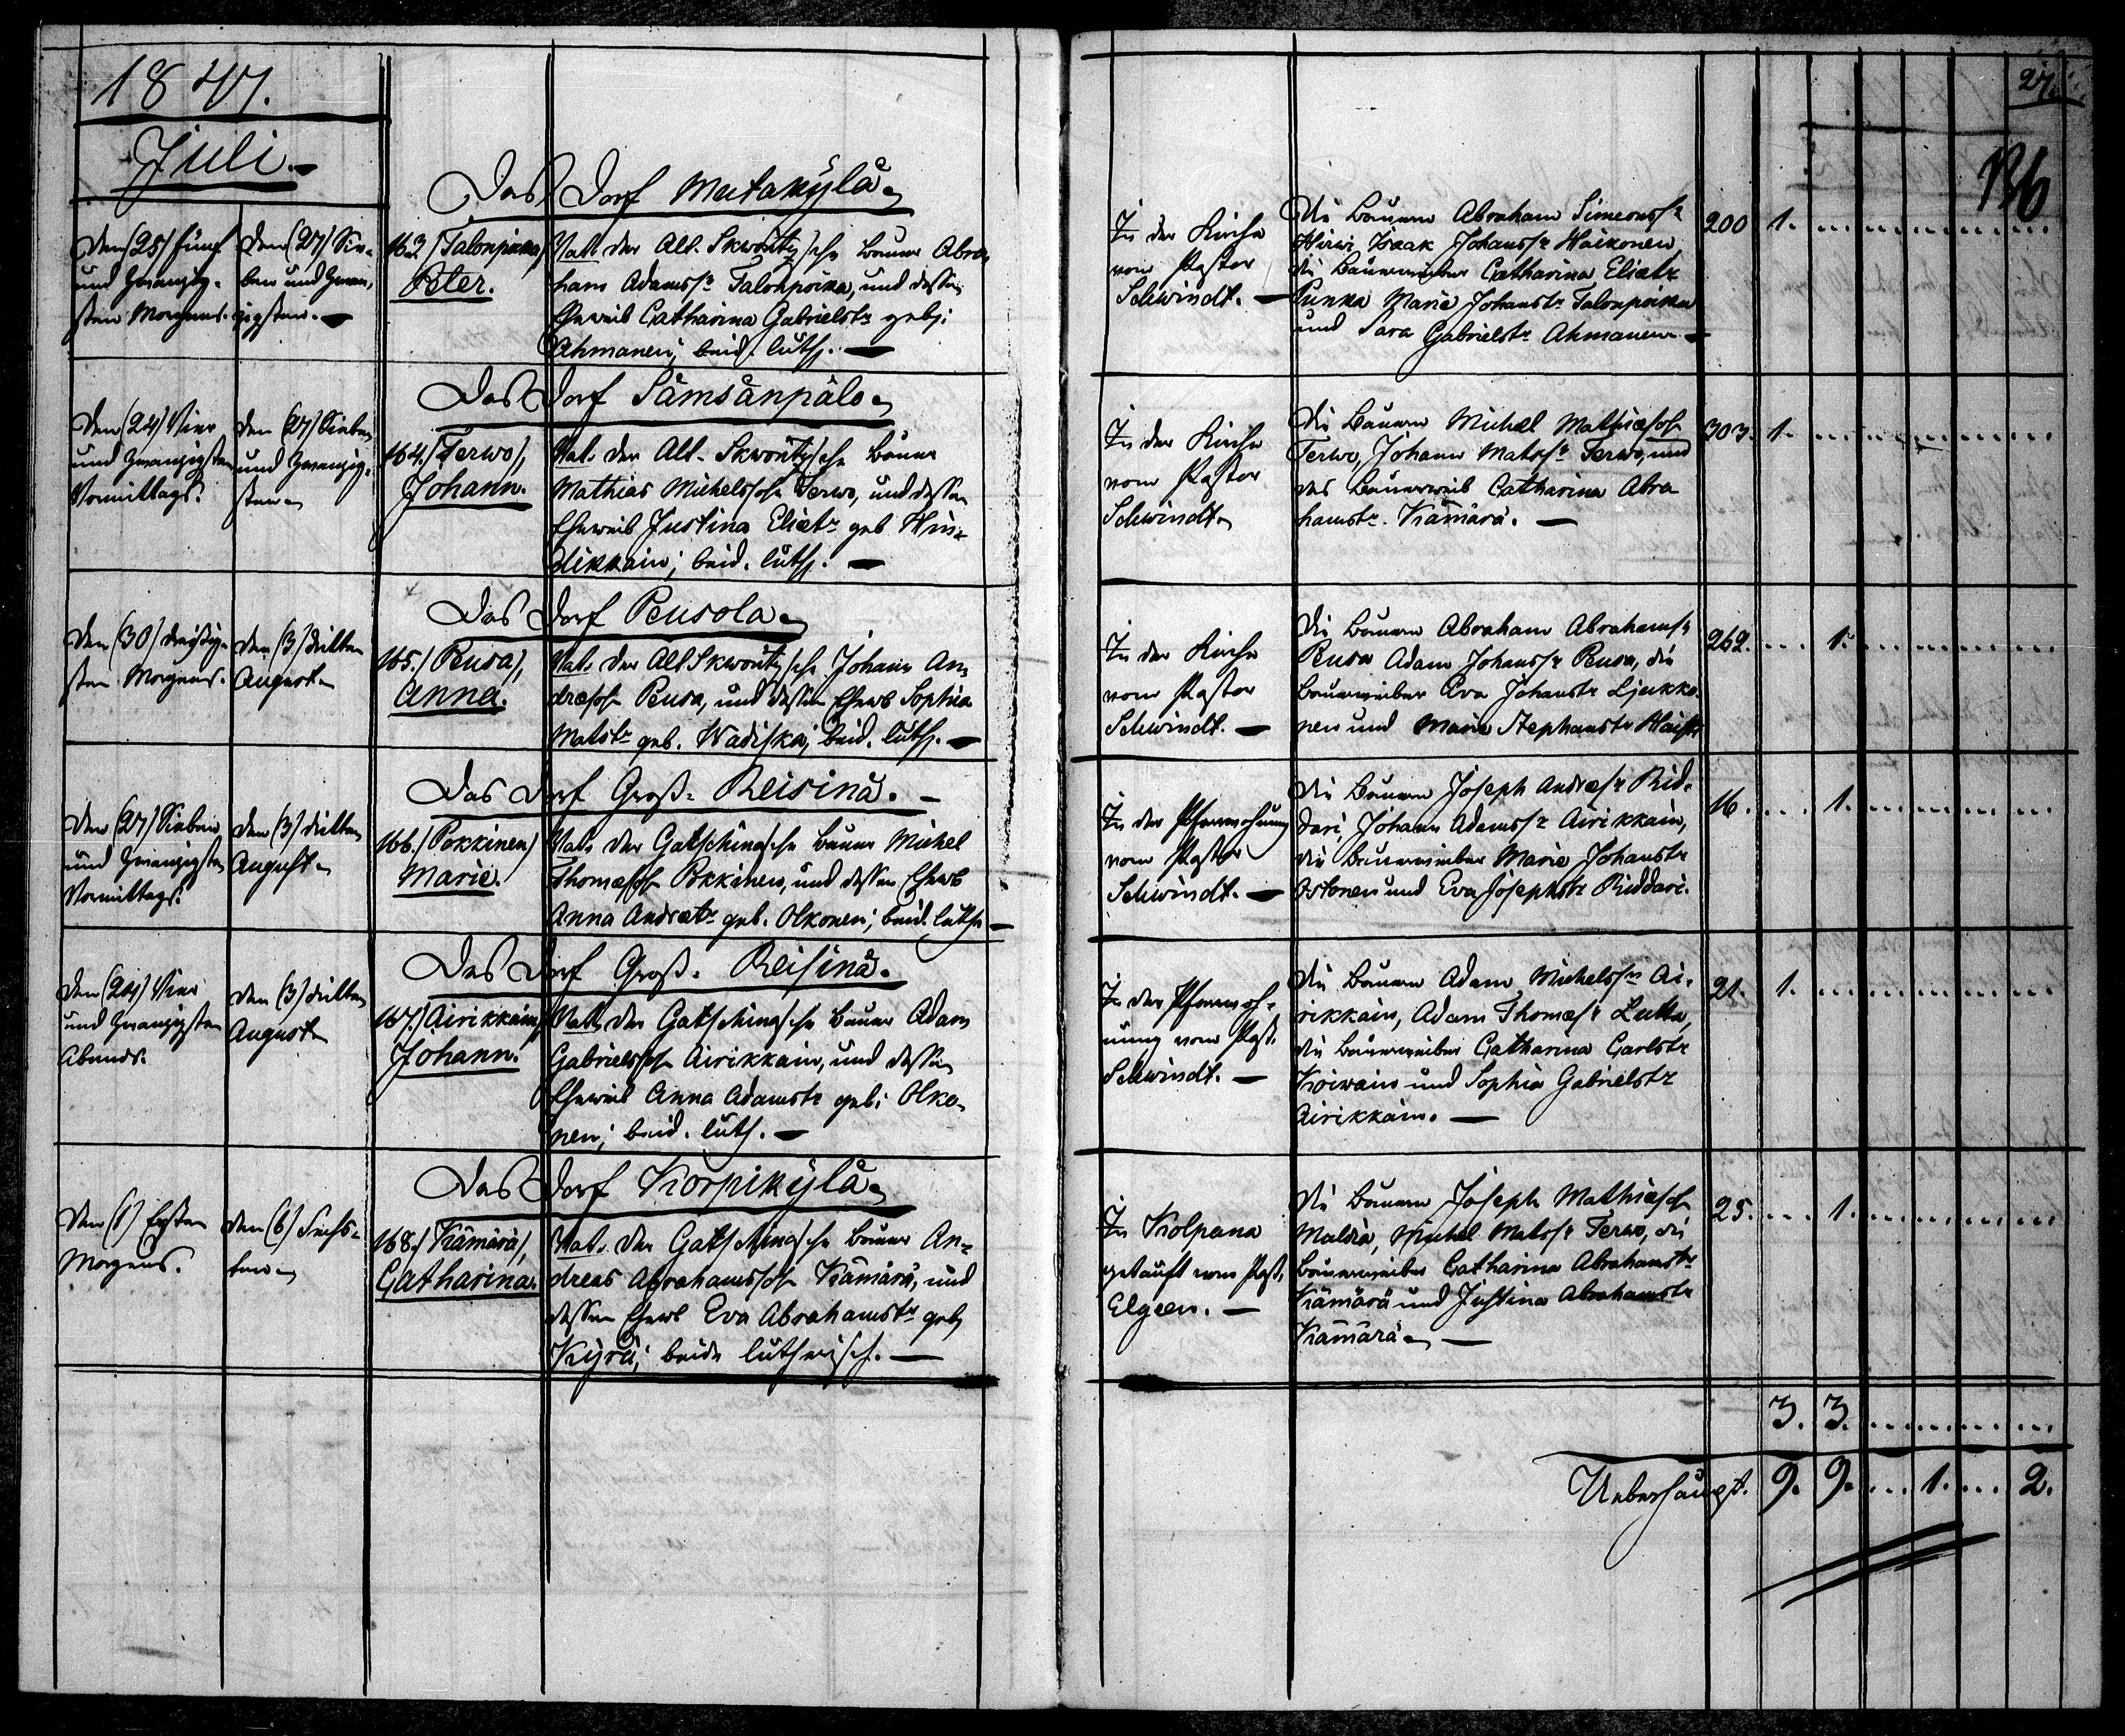 1847.
Juli.
Das Dorf Mutakylä
Den (25) fünf
und zwanzig-
sten Morgens.
Den (27) Sie-
ben und zwan-
zigsten.
163. (Talonpoika)
Peter.
Vat. der Alt. Skworitz'sche Bauer Abra-
ham Adamss. Talonpoika, und dessen
Eheweib Catharina Gabrielstr. geb.
Ahmanen; beid. luth.
In der Kirche
vom Pastor
Schwindt.
Die Bauern Abraham Simeonss.
Hirwi, Isaak Johanss. Haikonen,
die Bauerweiber Catharina Eliatr.
Punka Marie Johanstr. Talonpoika
und Sara Gabrielstr. Ahmanen.
200
1.
27.
136
Das Dorf Sämsänpälo
Den (24) Vier
und zwanzigsten
Vormittags.
Den (27) Sieben
und zwanzig-
sten
164. (Terwo),
Johann.
Vat. der Alt-Skworitz'sche Bauer
Mathias Michelssohn Terwo, und dessen
Eheweib Justina Eliatr. geb. Hin-
dikkain; beid. luth.
In der Kirche
vom Pastor
Schwindt
Die Bauern Michel Mathiassohn
Terwo, Johann Matss. Terwo, und
das Bauerweib Catharina Abra
hamstr. Kämärä.
303.
1.
Das Dorf Peusola
Den (30) dreißig-
sten Morgens.
Den (3) dritten
August
165. (Peusa),
Anna.
Vat. der Alt Skworitz'sche Johann An-
dreassohn Peusa, und dessen Ehewb Sophia
Matstr. geb. Wadiska; beid. luth.
In der Kirche
vom Pastor
Schwindt.
Die Bauern Abraham Abrahamss.
Peusa Adam Johanss. Peusa, die
Bauerweiber Eva Johanstr. Ljukko-
nen und Marie Stephanstr.
262.
1.
Das Dorf Groß-Reisinä.
Den (27) Sieben
und zwanzigsten
Vormittags.
Den (3) dritten
August
166. (Pokkinen)
Marie.
Vat. der Gatschinasche Bauer Michel
Thomassohn Pokkinen, und dessen Ehewb
Anna Andreatr. geb. Olkonen; beid. luth.
In der Pfarrwohnung
vom Pastor
Schwindt.
Die Bauern Joseph Andreass. Rid-
dari, Johann Adamss. Airikkain,
die Bauerweiber Marie Johanstr.
Ostonen und Eva Josephstr. Riddari.
16.
1.
Das Dorf Groß-Reisinä.
Den (24) Vier
und zwanzigsten
Abends.
Den (3) dritten
August
167. (Airikkain)
Johann.
Vat. der Gatschinasche Bauer Adam
Gabrielssohn Airikkain, und dessen
Eheweib Anna Adamstr. geb. Olko-
nen; beid. luth.
In der Pfarrwoh-
nung vom Past.
Schwindt.
Die Bauern Adam Michelss. Ai-
rikkain, Adam Thomass. Lukka,
die Bauerweiber Catharina Carlstr.
Koiwain und Sophia Gabrielstr.
Airikkain.
21.
1.
Das Dorf Korpikylä
Den (1) Ersten
Morgens.
Den (6) Sechs-
ten
168. (Kämärä),
Catharina.
Vat. der Gatschinasche Bauer An-
dreas Abrahamssohn Kämärä, und
dessen Ehewb Eva Abrahamstr. geb.
Kyrä; beide lutherisch.
In Kolpana
getauft vom Past.
Elgren.
Die Bauern Joseph Mathiassohn
Maldia, Michel Matss. Terwo, die
Bauerweiber Catharina Abrahamstr.
Kämärä und Justina Abrahamstr.
Kämärä
25.
1.
3. 3.
Ueberhaupt. 9. 9. 1. 2.